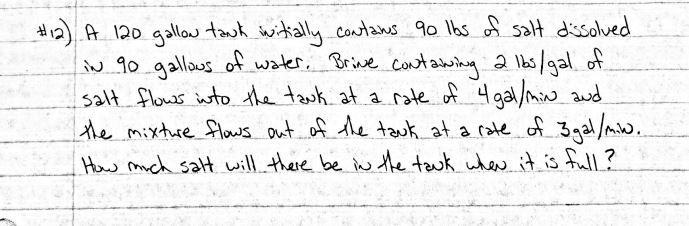 #12) A 120 gallon tank initially contains 90 lbs of salt dissolved
in 90 gallons of water. Brine containing 2 lbs/gal of
salt flows into the tank at a rate of 4 gal/min and
the mixture flows out of the tank at a rate of 3 gal/min.
How much salt will there be in the tank when it is full?